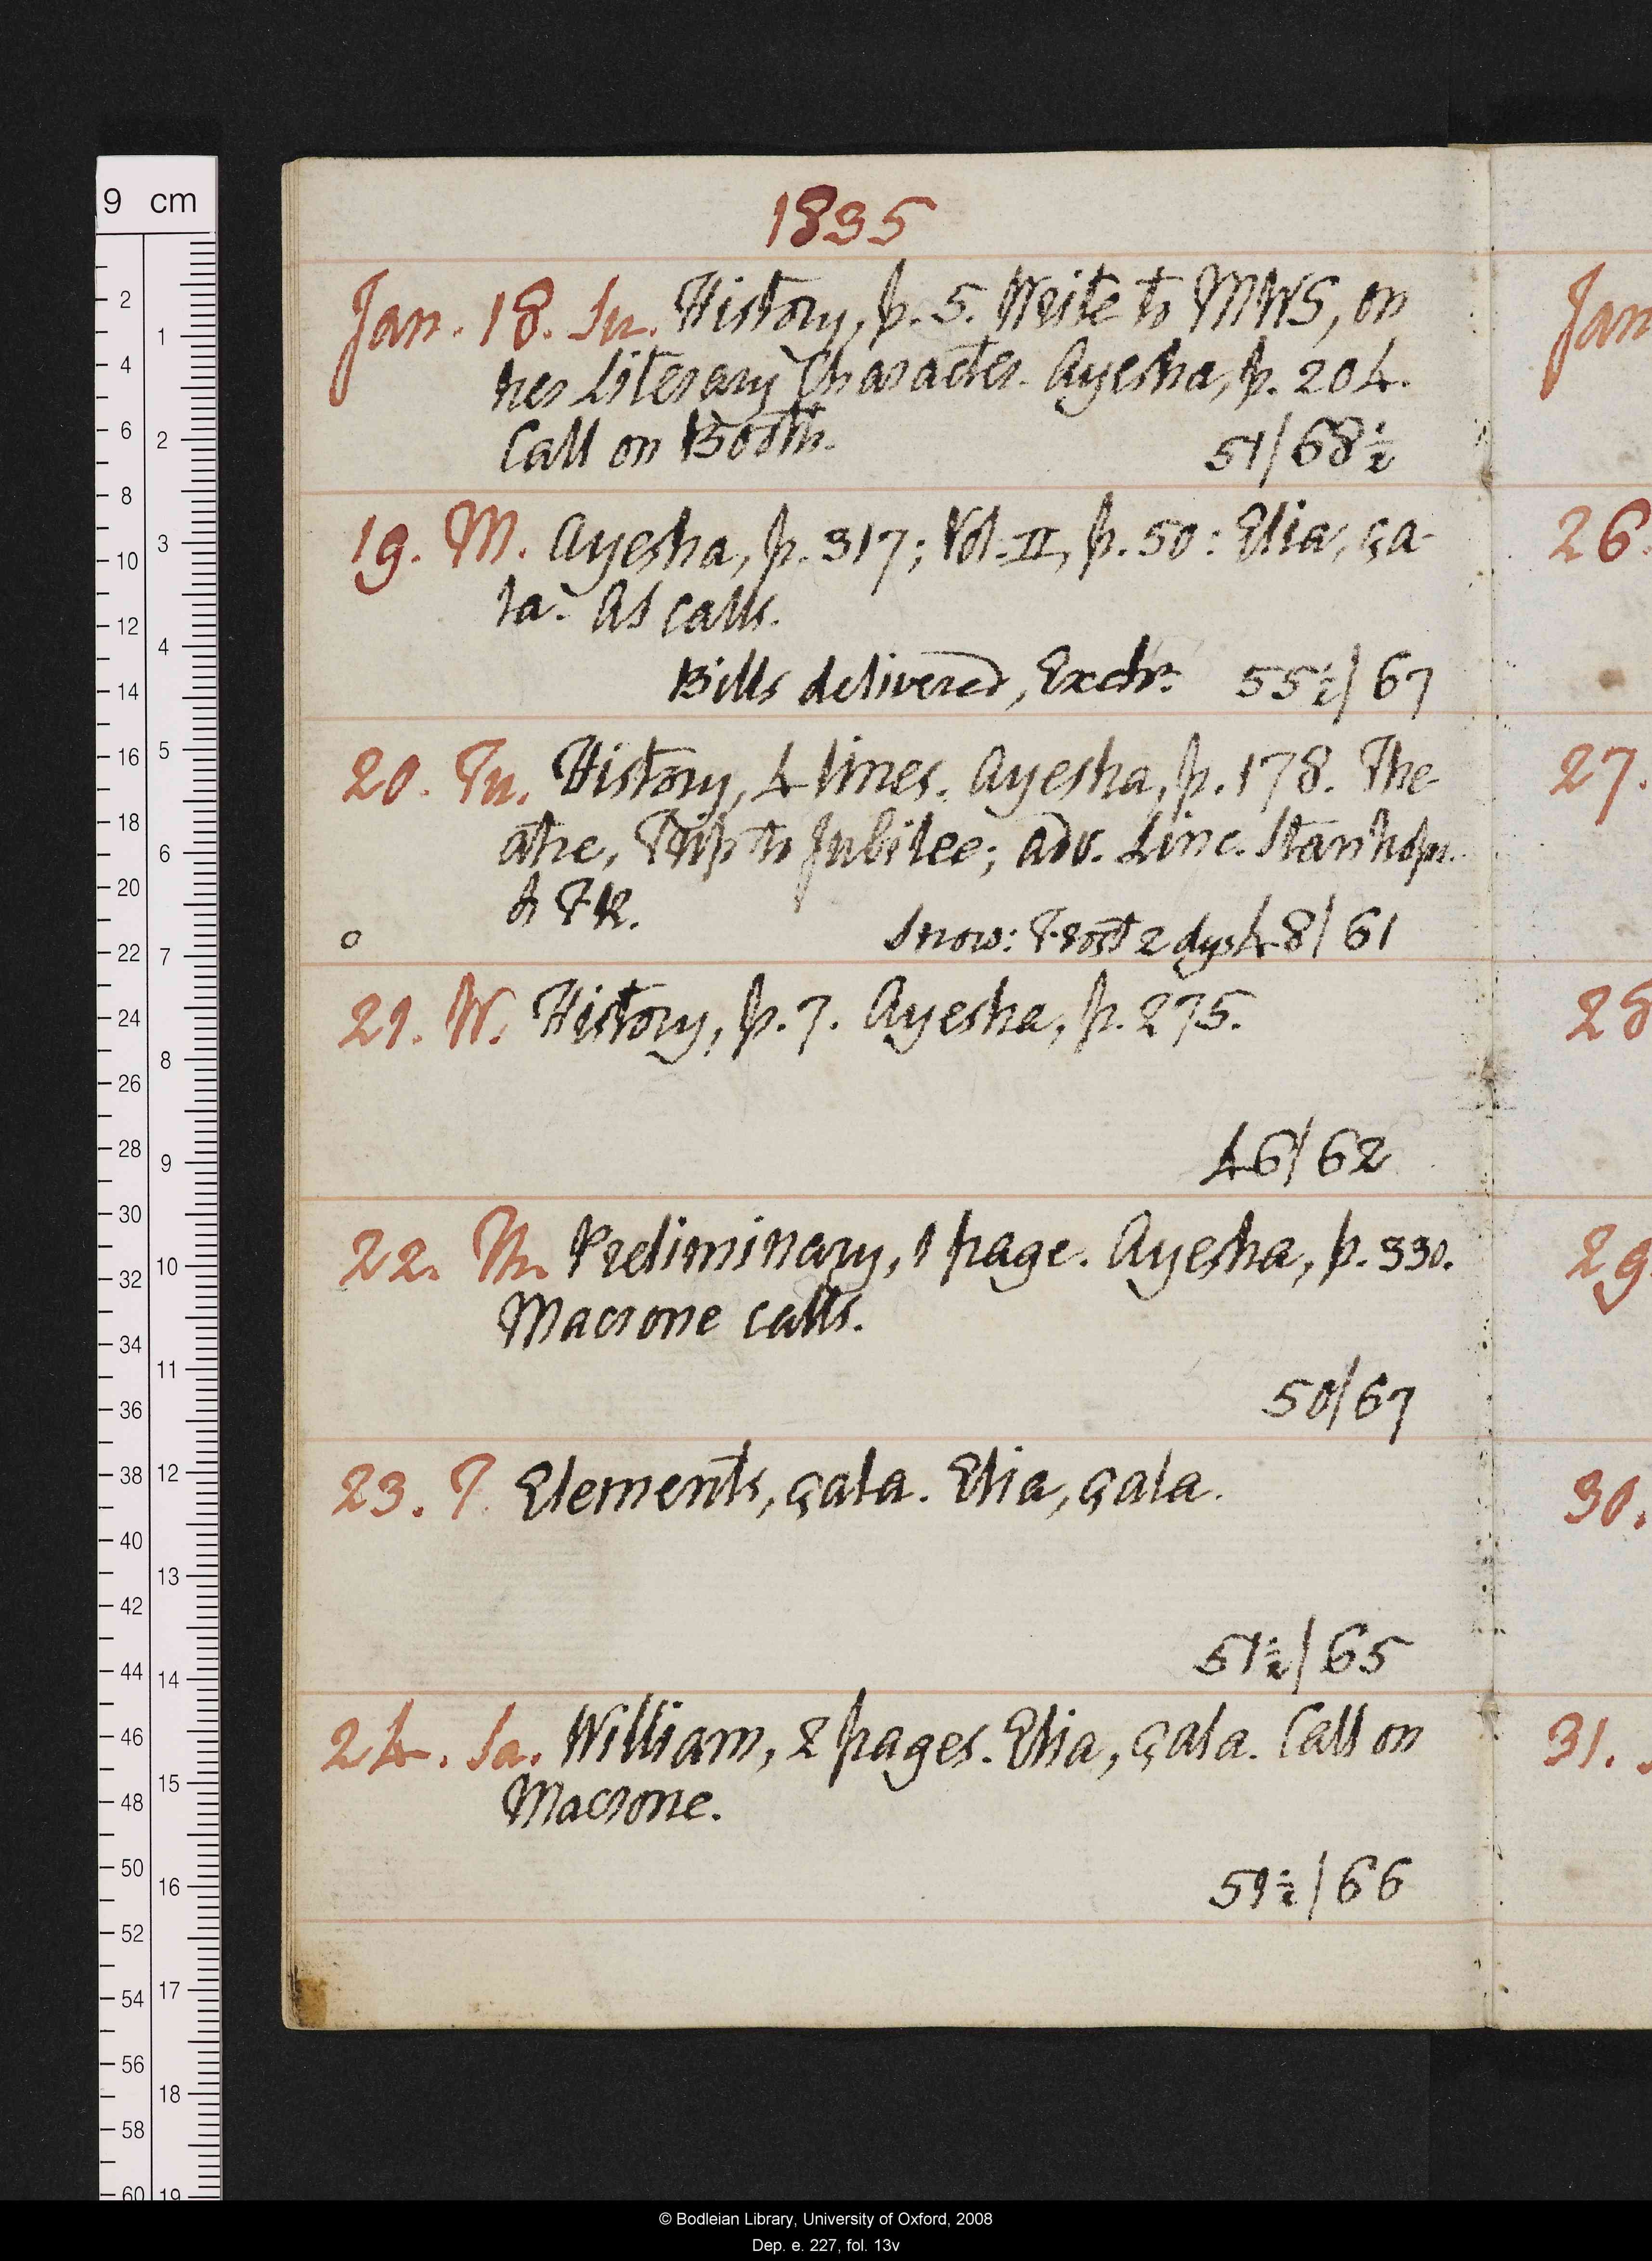 1835
Jan. 18. Su. History, p. 5. Write to MWS, on
her Literary Character. Ayesha, p. 204.
Call on Booth. 51/68½
19. M. Ayesha, p. 317; Vol. II, p. 50: Elia, ça-
la. AS calls.
Bills delivered, Exchr. 55½/67
20. Tu. History, 4 lines. Ayesha, p. 178. The-
atre, Trip to Jubilee; adv. Linc. Stanhope
& FR.
o Snow: Frost 2 dys 48/61
21. W. History, p. 7. Ayesha, p. 275.
46/62
22. Th. Preliminary, 1 page. Ayesha, p. 330.
Macrone calls.
50/67
23. F. Elements, çala. Elia, çala.
51½/65
24. Sa. William, 2 pages. Elia, çala. Call on
Macrone.
51½/66
Jan
26.
27.
28
29
30.
31.
9 cm
2 4 6 8 10 12 14 16 18 20 22 24 26 28 30 32 34 36 38 40 42 44 46 48 50 52 54 56 58 60
1 2 3 4 5 6 7 8 9 10 11 12 13 14 15 16 17 18 19
© Bodleian Library, University of Oxford, 2008
Dep. e. 227, fol. 13v